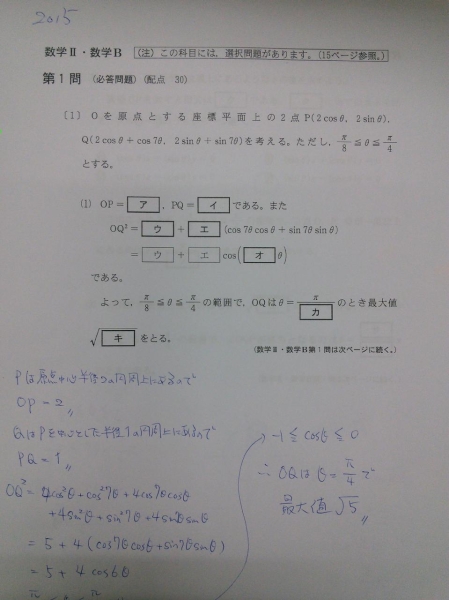 2015
数学Ⅱ・数学B (注) この科目には，選択問題があります。(15ページ参照。)
第1問 (必答問題) (配点 30)
〔1〕 Oを原点とする座標平面上の2点P(2cosθ, 2sinθ),
Q(2cosθ + cos7θ, 2sinθ + sin7θ)を考える。ただし, π/8 ≦ θ ≦ π/4
とする。
(1) OP = ア , PQ = イ である。また
OQ² = ウ + エ (cos7θcosθ + sin7θsinθ)
= ウ + エ cos( オ θ)
である。
よって, π/8 ≦ θ ≦ π/4 の範囲で, OQはθ = π/カ のとき最大値
√キ をとる。
(数学Ⅱ・数学B第1問は次ページに続く。)
Pは原点中心半径2の円周上にあるので
OP = 2 〃
QはPを中心とした半径1の円周上にあるので
PQ = 1 〃
OQ² = 4cos²θ + cos²7θ + 4cos7θcosθ
+ 4sin²θ + sin²7θ + 4sin7θsinθ
= 5 + 4 (cos7θcosθ + sin7θsinθ)
= 5 + 4 cos6θ
-1 ≦ cos6θ ≦ 0
∴ OQは θ = π/4 で
最大値 √5 〃